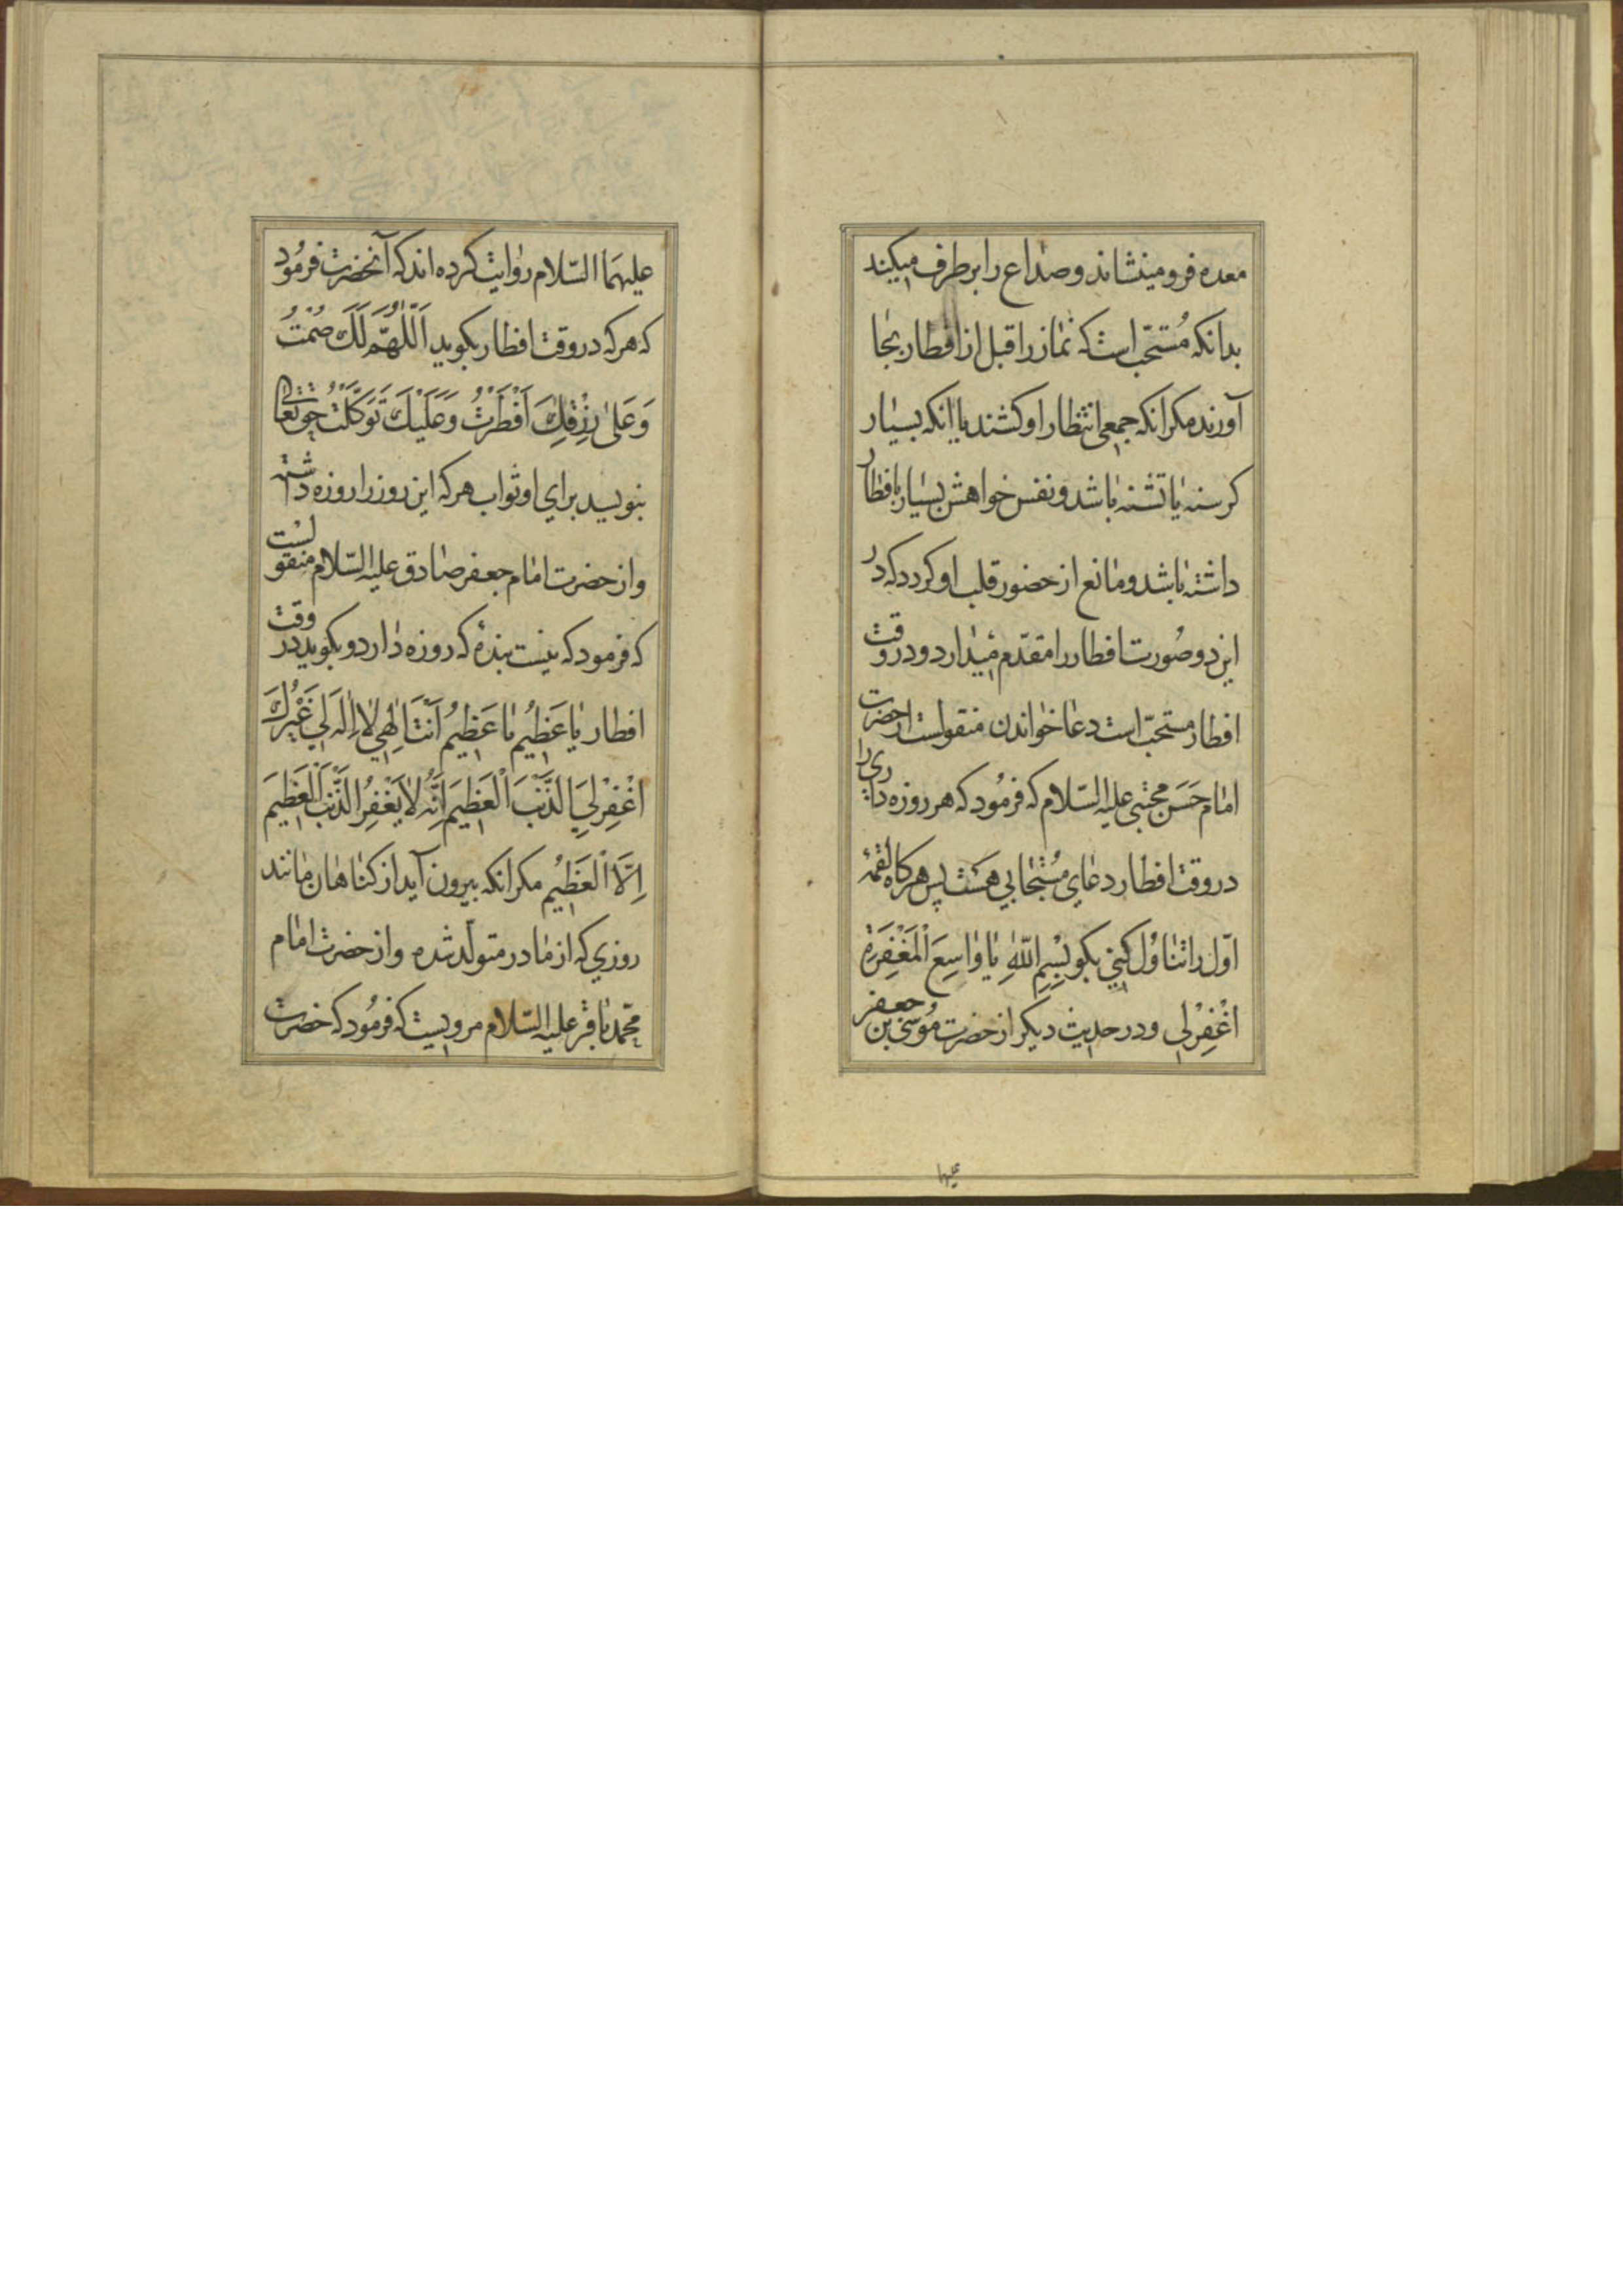 معده فرو مینشاند و صداع را برطرف میکند
بدانکه مُستحبّ است که نماز را قبل از افطار بجا
آورند مکر انکه جمعی انتظار او کشند یا انکه بسیار
کرسنه یا تشنه باشد و نفس خواهش بسیار بافطار
داشته باشد و مانع از حضور قلب او کردد که در
این دو صُورت افطار را مقدّم میدارد و در وقت
افطار مستحبّ است دعا خواندن منقولست از حضرت
امام حَسَن مجتبی علیه السّلام که فرمُود که هر روزه داری را
در وقت افطار دعای مُستجابی هست پس هرکاه لقمهٔ
اوّل را تناوُل کنی بکو بِسْمِ اللّٰهِ یا وٰاسِعَ الْمَغْفِرَةِ
اغْفِرْلی و در حدیث دیکر از حضرت مُوسی بن جعفر
علیها
علیهمَا السّلام روایت کرده اند که آنحضرت فرمُود
که هرکه در وقت افطار بکوید اَللّٰهُمَّ لَكَ صُمْتُ
وَ عَلیٰ رِزْقِكَ اَفْطَرْتُ وَ عَلَیْكَ تَوَکَّلْتُ حق تعالی
بنویسد برای او ثواب هرکه این روز را روزه داشته
و از حضرت امام جعفر صادق علیه السّلام منقولست
که فرمود که نیست بندهٔ که روزه دارد و بکوید در وقت
افطار یٰا عَظیمُ یٰا عَظیمُ اَنْتَ اِلٰهی لٰا اِلٰهَ لی غَیْرُكَ
اغْفِرْ لِیَ الذَّنْبَ الْعَظیمَ اِنَّهُ لٰا یَغْفِرُ الذَّنْبَ الْعَظیمَ
اِلَّا الْعَظیمُ مکر انکه بیرون آید از کناهان مانند
روزی که از مادر متولّد شده و از حضرت امام
محمّد باقر علیه السّلام مرویست که فرمُود که حضرت